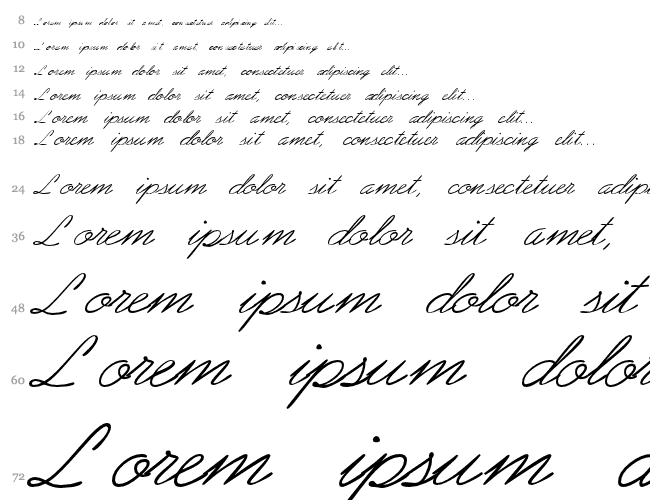 8 Lorem ipsum dolor sit amet, consectetuer adipiscing elit...
10 Lorem ipsum dolor sit amet, consectetuer adipiscing elit...
12 Lorem ipsum dolor sit amet, consectetuer adipiscing elit...
14 Lorem ipsum dolor sit amet, consectetuer adipiscing elit...
16 Lorem ipsum dolor sit amet, consectetuer adipiscing elit...
18 Lorem ipsum dolor sit amet, consectetuer adipiscing elit...
24 Lorem ipsum dolor sit amet, consectetuer adip
36 Lorem ipsum dolor sit amet,
48 Lorem ipsum dolor sit
60 Lorem ipsum dolor
72 Lorem ipsum d